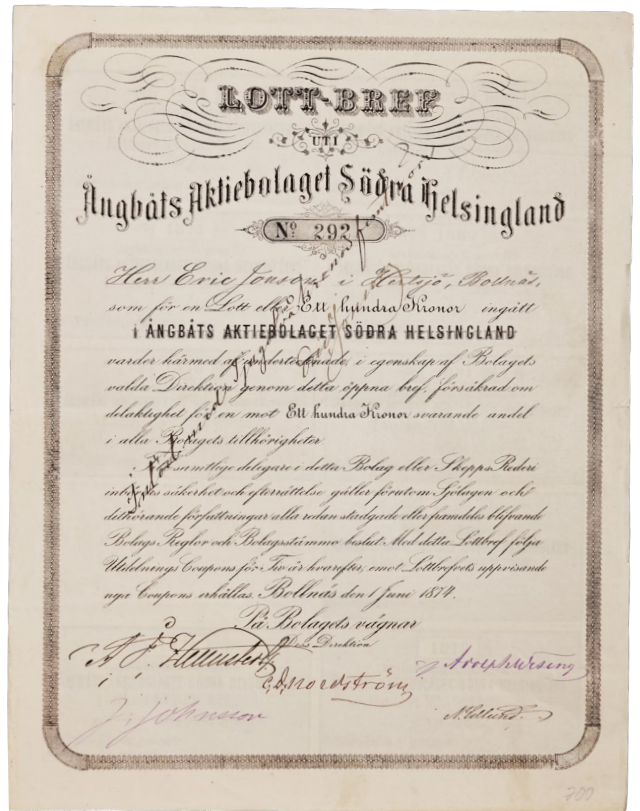 LOTT-BREF
UTI
Ångbåts Aktiebolaget Södra Helsingland
No 292
Herr Eric Jonson i Hertsjö, Bollnäs,
som för en Lott eller Ett hundra Kronor ingått
i ÅNGBÅTS AKTIEBOLAGET SÖDRA HELSINGLAND
varder härmed af undertecknade, i egenskap af Bolagets
valda Direktion genom detta öppna bref, försäkrad om
delaktighet för en mot Ett hundra Kronor svarande andel
i alla Bolagets tillhörigheter
samtlige delegare i detta Bolag eller Skepps Rederi
inbördes säkerhet och efterrättelse gäller förutom Sjölagen och
dethörande författningar alla redan stadgade eller framdeles blifvande
Bolags Reglor och Bolagsstämmo beslut. Med detta Lottbref följa
Utdelnings Coupons för Tio år hvarefter, emot Lottbrefvets uppvisande
nya Coupons erhållas. Bollnäs den 1 Juni 1874.
På Bolagets vägnar
dess Direktion
Adolph Wesing
C.D. Nordström
J. Johnsson
700